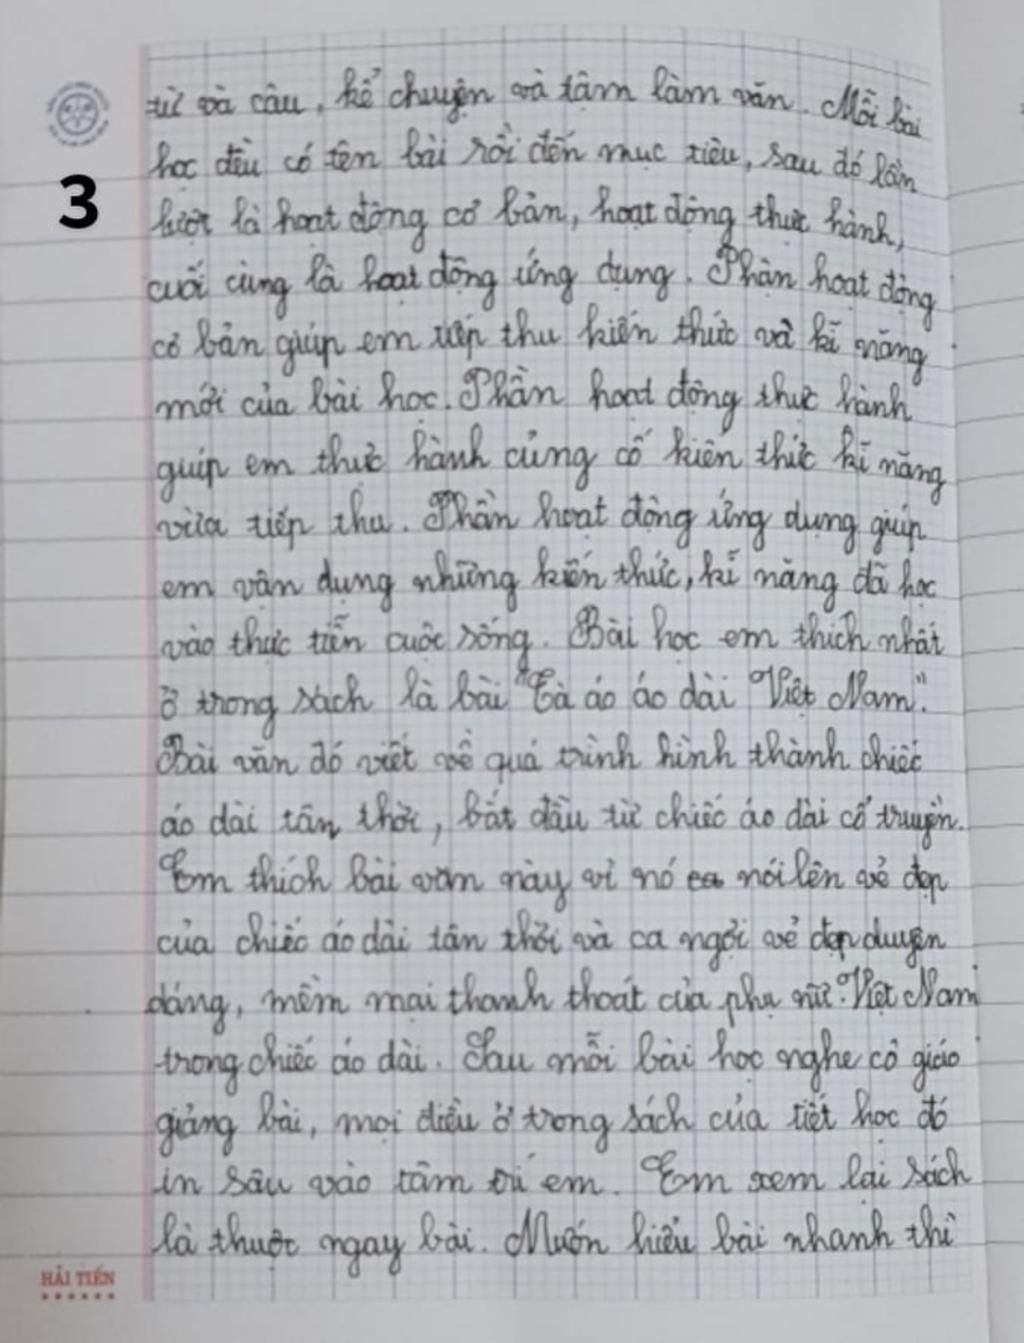 3
từ và câu, kể chuyện và tâm làm văn. Mỗi bài
học đều có tên bài rồi đến mục tiêu, sau đó lần
lượt là hoạt động cơ bản, hoạt động thực hành,
cuối cùng là hoạt động ứng dụng. Phần hoạt động
cơ bản giúp em tiếp thu kiến thức và kĩ năng
mới của bài học. Phần hoạt động thực hành
giúp em thực hành củng cố kiến thức kĩ năng
vừa tiếp thu. Phần hoạt động ứng dụng giúp
em vận dụng những kiến thức, kĩ năng đã học
vào thực tiễn cuộc sống. Bài học em thích nhất
ở trong sách là bài "Tà áo áo dài Việt Nam".
Bài văn đó viết về quá trình hình thành chiếc
áo dài tân thời, bắt đầu từ chiếc áo dài cổ truyền.
Em thích bài văn này vì nó nói lên vẻ đẹp
của chiếc áo dài tân thời và ca ngợi vẻ đẹp duyên
dáng, mềm mại thanh thoát của phụ nữ Việt Nam
trong chiếc áo dài. Sau mỗi bài học nghe cô giáo
giảng bài, mọi điều ở trong sách của tiết học đó
in sâu vào tâm trí em. Em xem lại sách
là thuộc ngay bài. Muốn hiểu bài nhanh thì
HẢI TIẾN